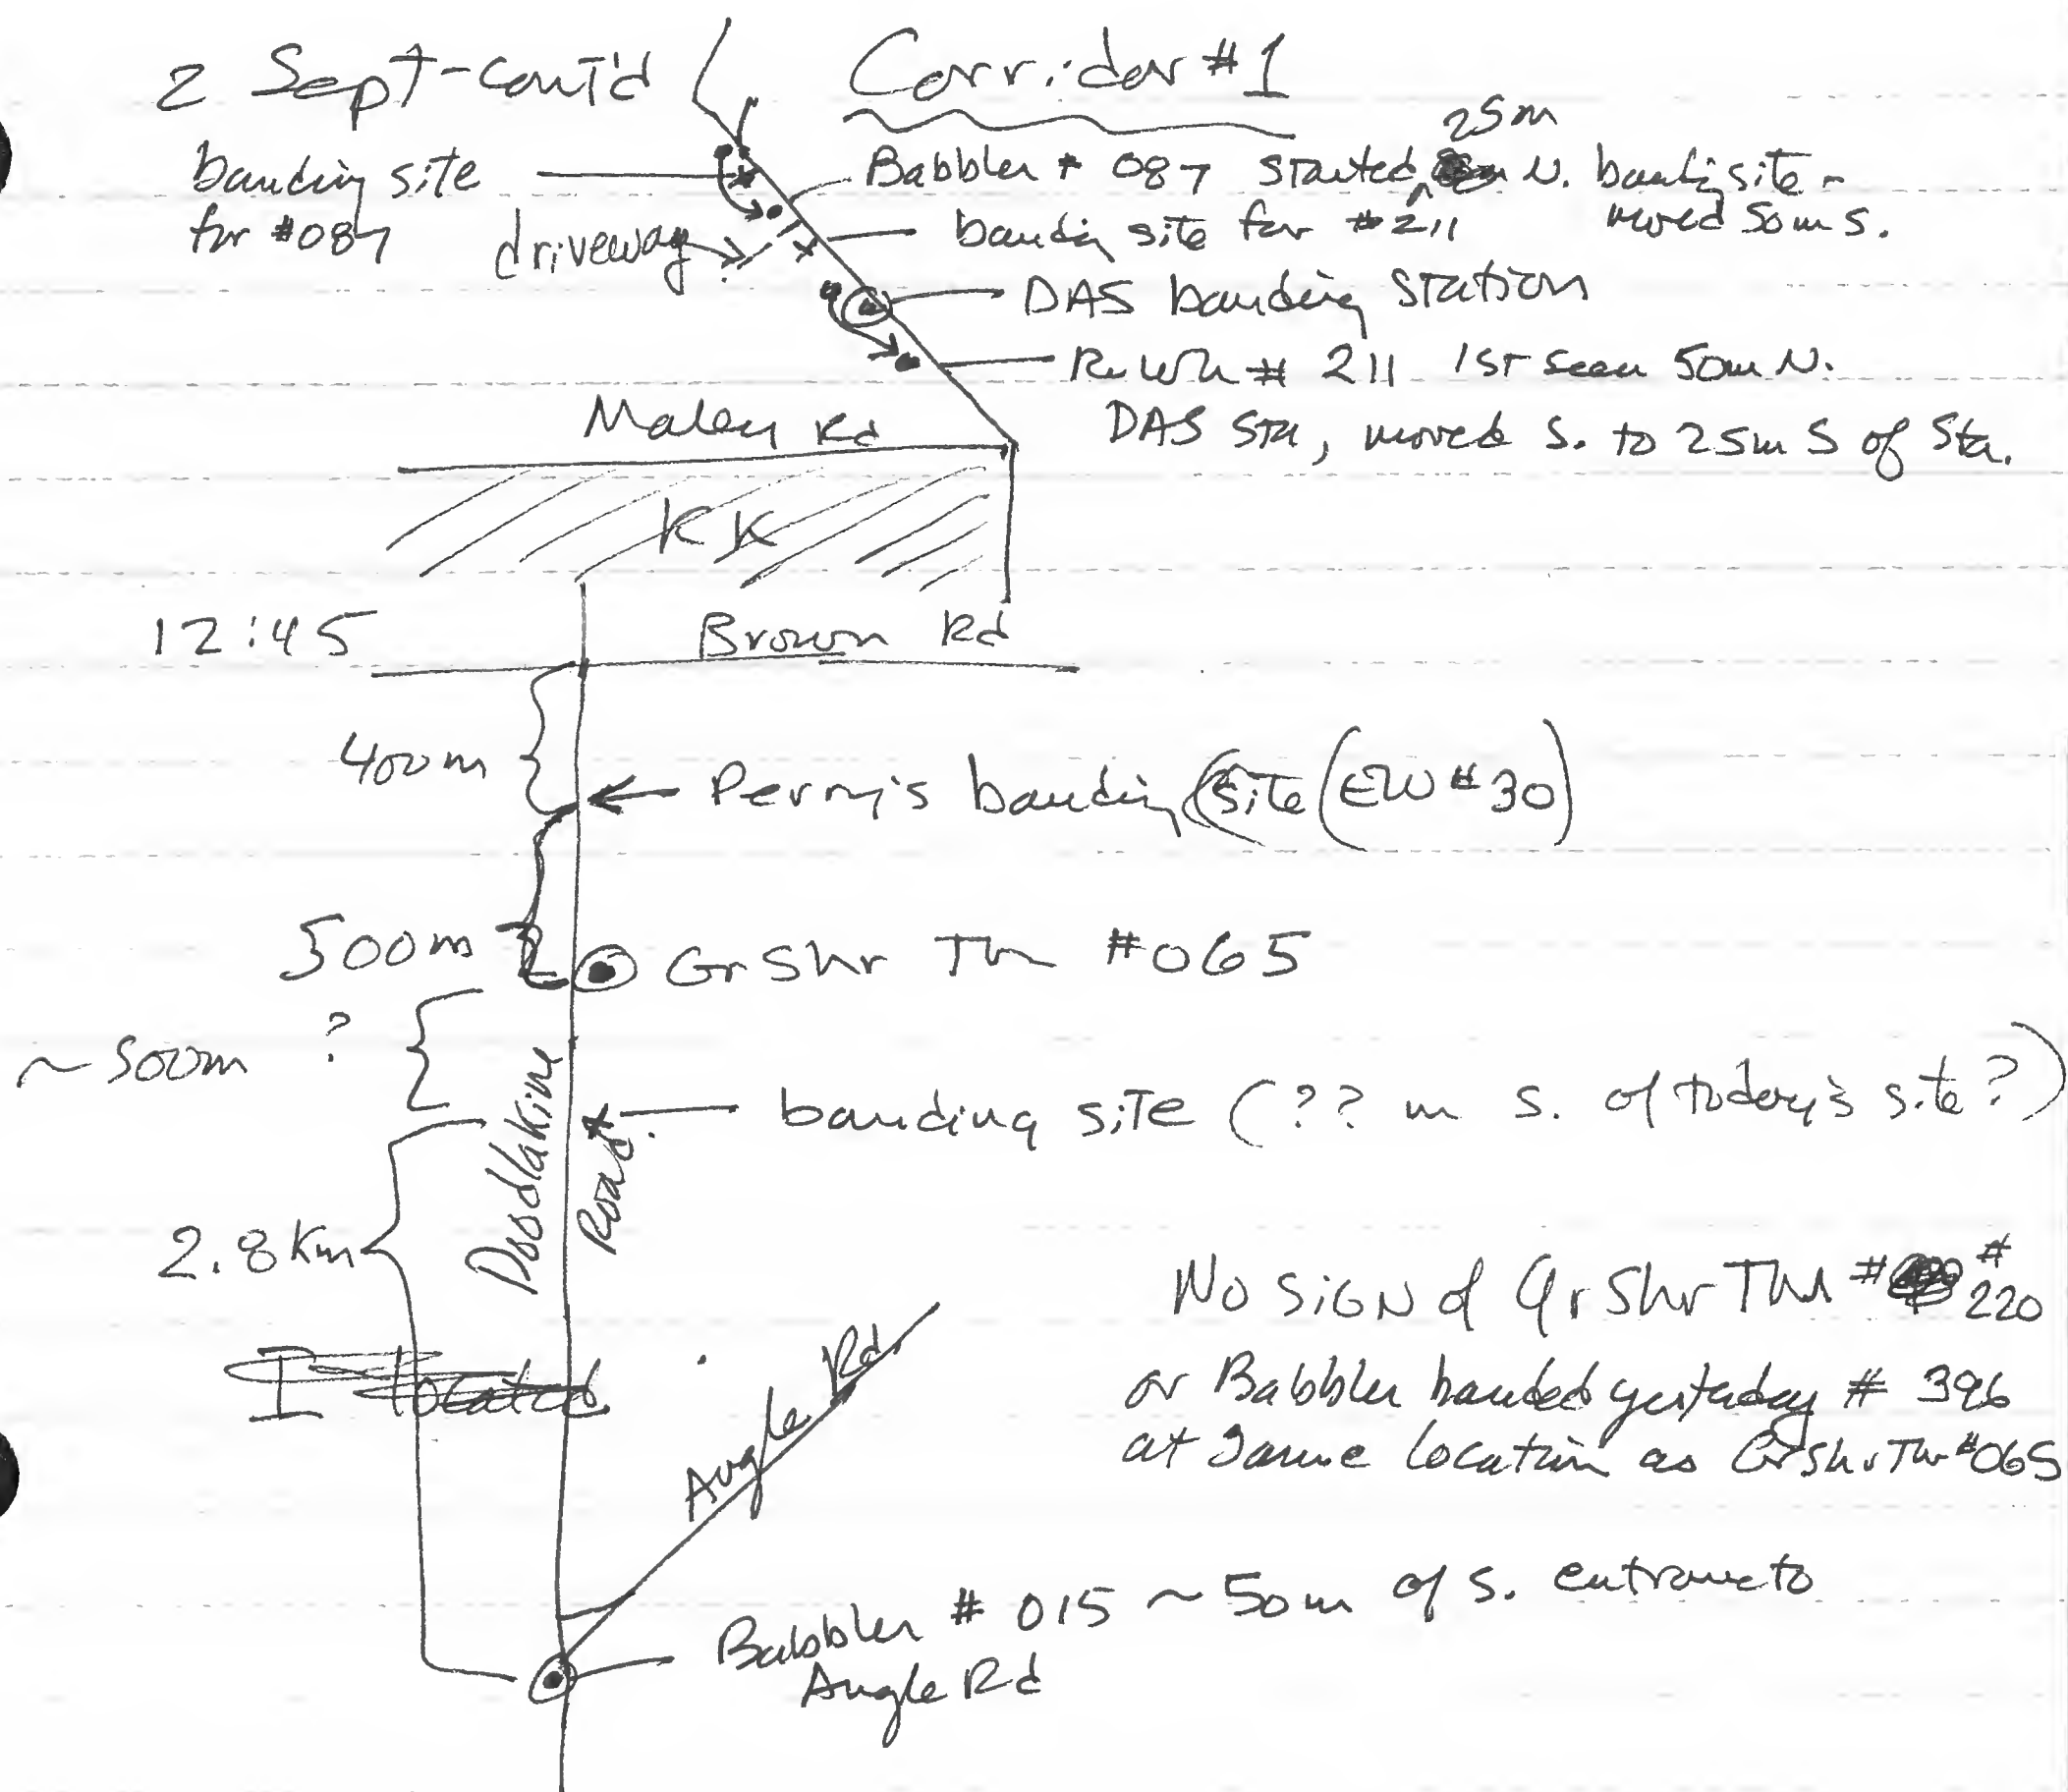 2 Sept-cont'd
Corridor #1
25m
banding site
for #087
Babbler # 087 started N. banding site -
moved 50m S.
driveway
banding site for #211
DAS banding station
1st seen 50m N.
# 211
DAS Sta, moved S. to 25m S of Sta.
Rd
KK
12:45
Brown Rd
400m
Perry's banding site (EW #30)
500m
GrShr Th #065
~ 500m ?
banding site (?? m S. of today's site?)
Doodlakine
Road
2.8 Km
No sign of GrShrTh # #220
or Babbler banded yesterday # 396
at same location as GrShrTh #065
I located
Angle Rd.
Babbler # 015 ~ 50m of S. entrance to
Angle Rd